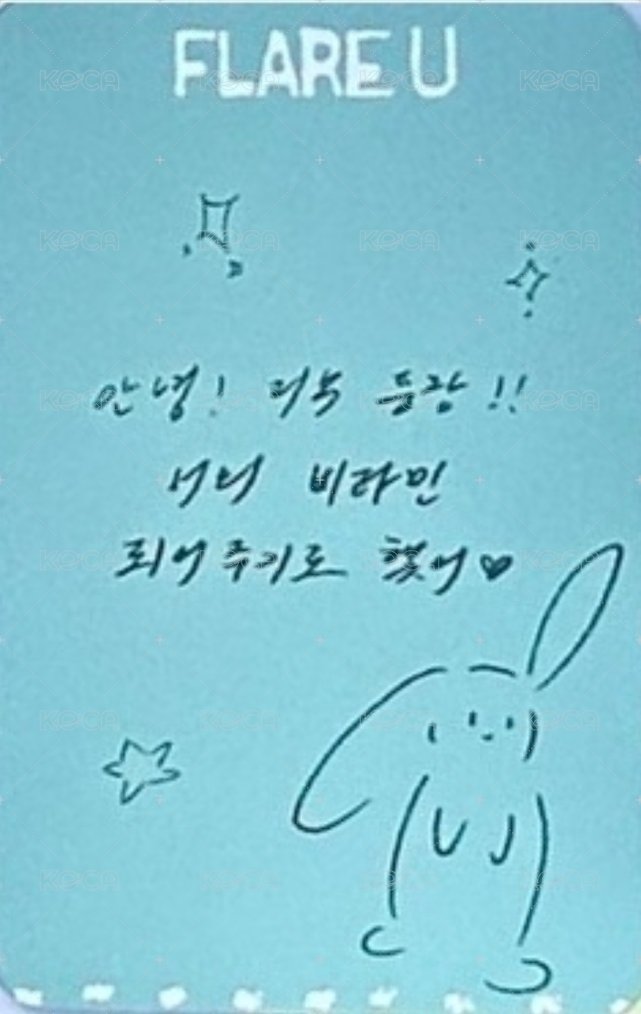 FLARE U
안녕! 등장!!
너의 비타민
되어주기로 했어♡